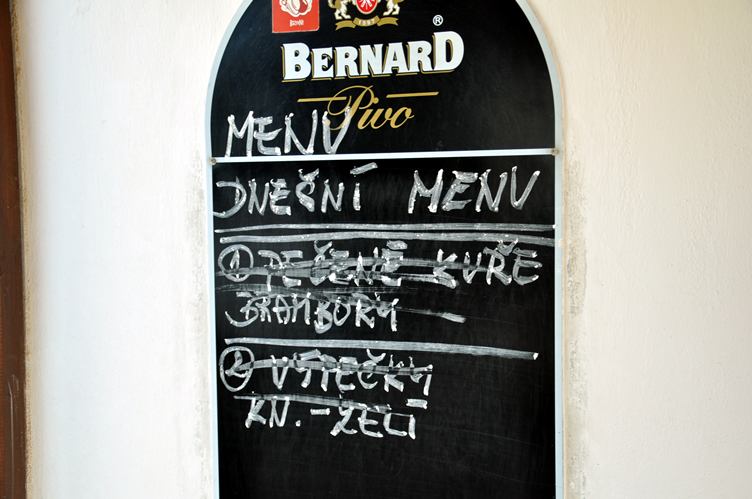 BERNARD ®
Pivo
MENU
DNEŠNÍ MENU
1 PEČENÉ KUŘE
BRAMBORY
2 VÝPEČKY
KN. - ZELÍ